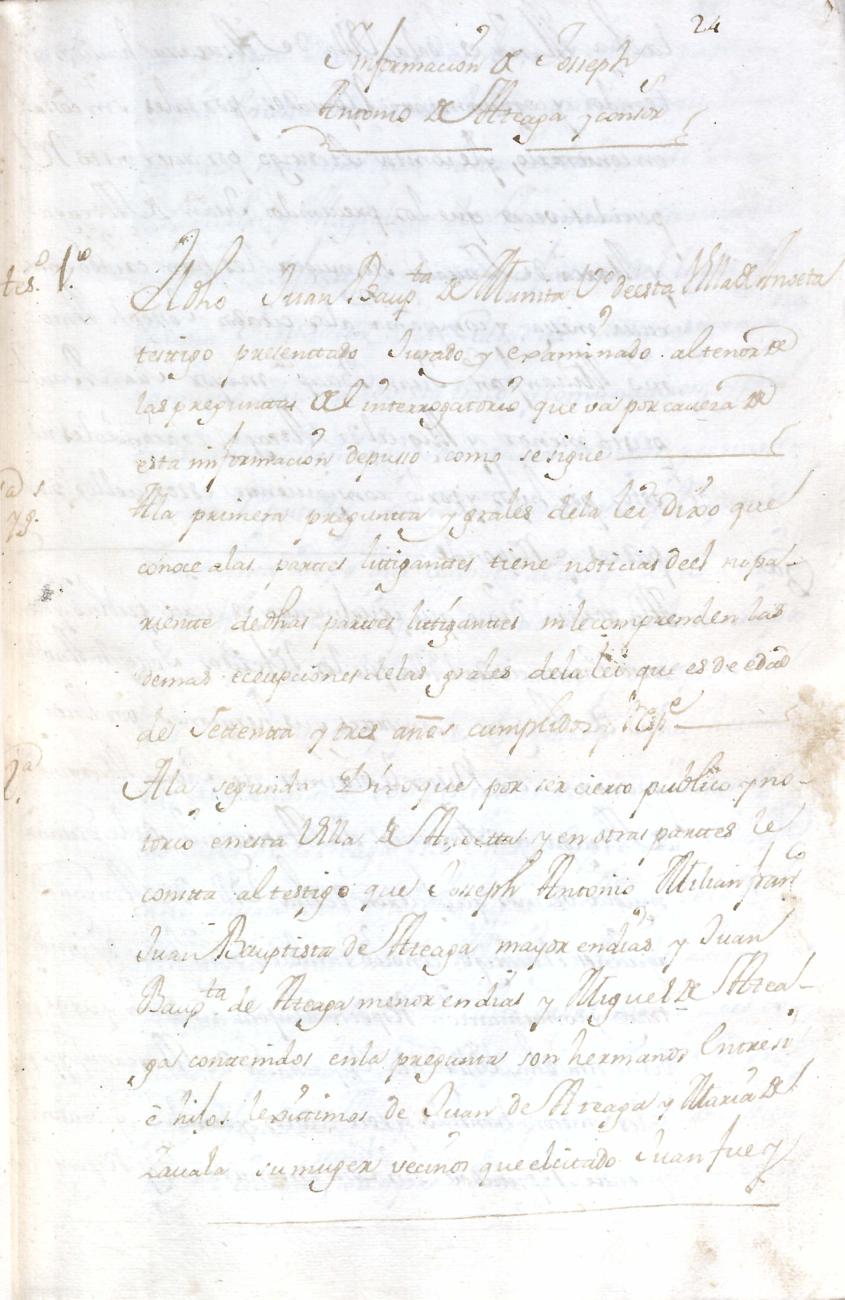 24
Ynformacion de Josseph
Antonio de Ateaga y consor.s
tes.o 1.ro
El dho Juan Baup.ta de Munita V.o de esta Villa de Anoeta
testigo presenttado Jurado y examinado al tenor de
las preguntas del interrogatorio que va por cavera de
esta informacion depusso como se sigue
A la primera pregunta y grales de la lei Dixo que
conoce a las parttes littigantes tiene noticias de el no pa-
riente de dhas parttes littigantes ni le comprenden las
demas ecepciones de las grales de la lei que es de edad
de Settentta y tres años cumplidos, y resp.e
2.a
A la segunda Dixo que por ser cierto publico y no-
torio en esta Villa de Anoetta y en otras parttes le
constta al testigo que Josseph Antonio Milian fran.co
Juan Bauptista de Ateaga mayor en dias y Juan
Baup.ta de Ateaga menor en dias y Miguel de Atea-
ga contenidos en la pregunta son hermanos Entre si
e hijos lexittimos de Juan de Ateaga y Maria de
Zavala su muger vecinos que el citado Juan fue y